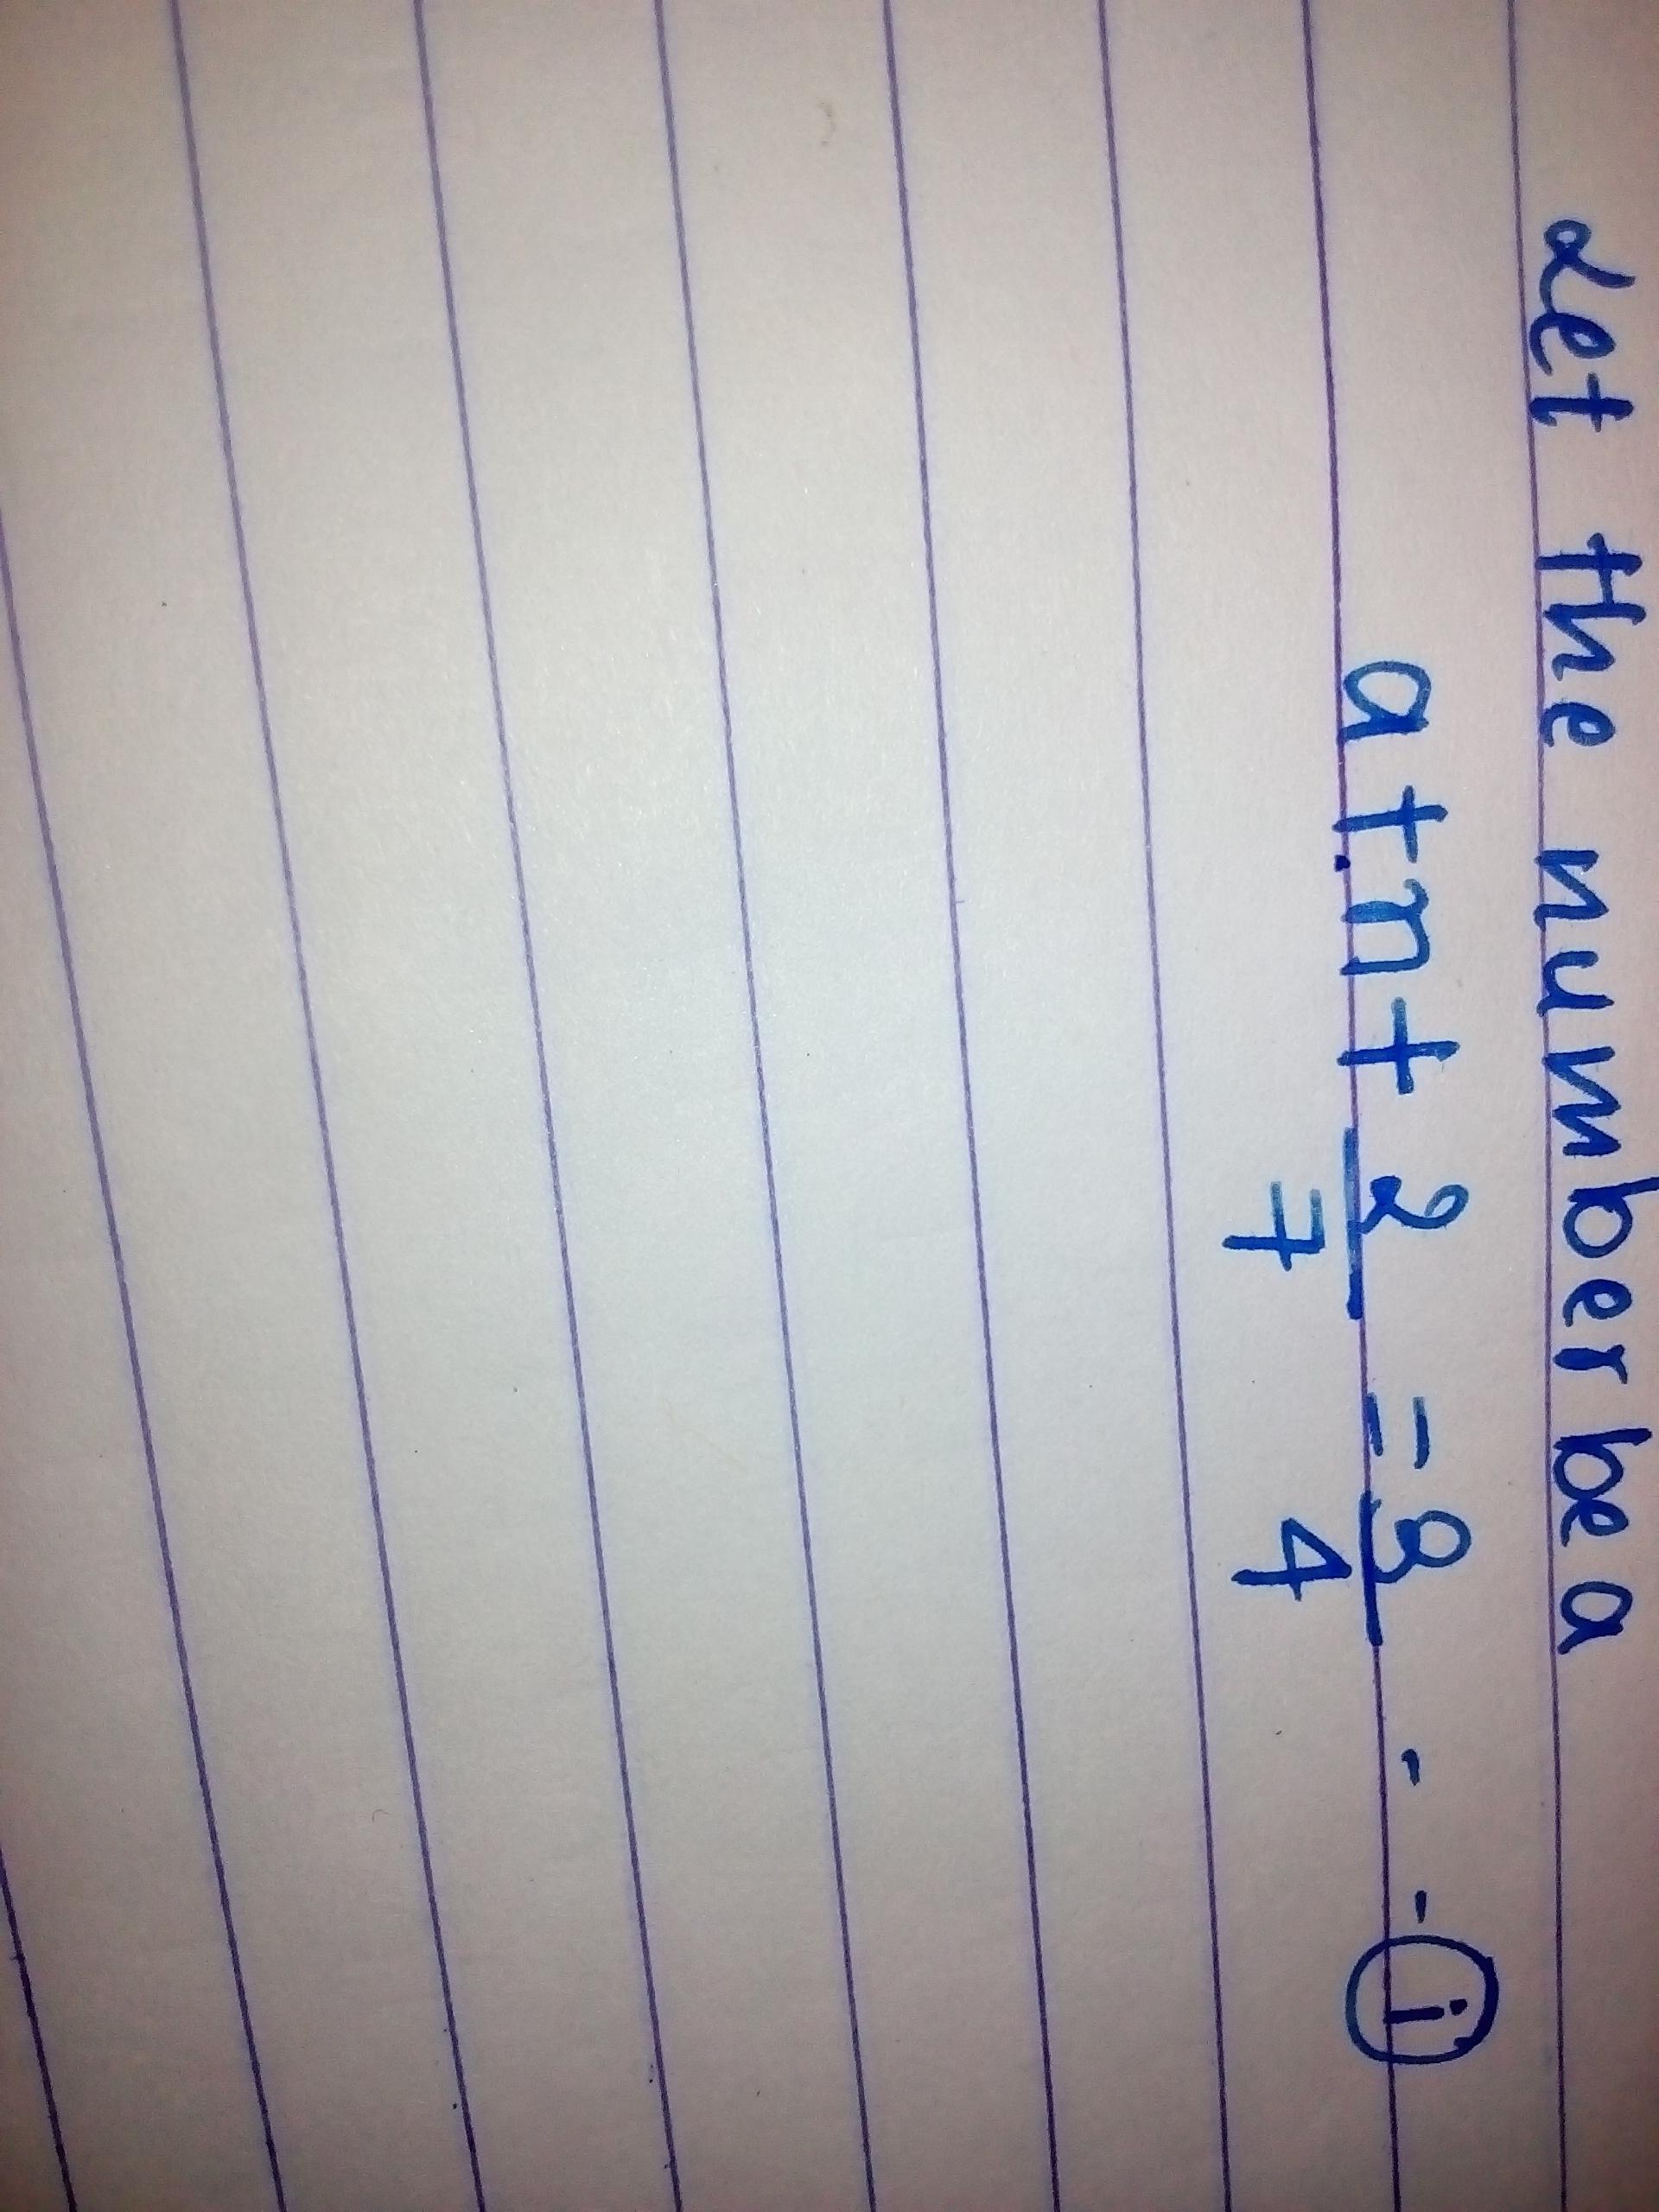 Let the number be a
a + n + 2/7 = 9/4 - - i